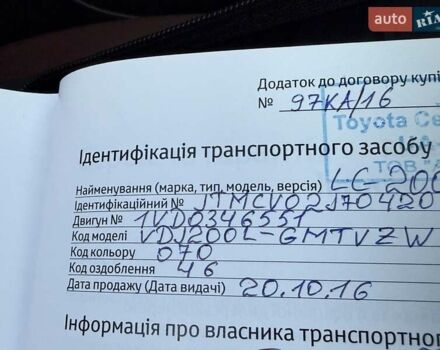 auto RIA
Додаток до договору купі
№ 97КА/16
Toyota Ce
ТОВ
Ідентифікація транспортного засобу
Найменування (марка, тип, модель, версія) LC-200
Ідентифікаційний № JTMCV02J70420
Двигун № 1VD0346551
Код моделі VDJ200L-GMTVZW
Код кольору 070
Код оздоблення 46
Дата продажу (Дата видачі) 20.10.16
Інформація про власника транспортног